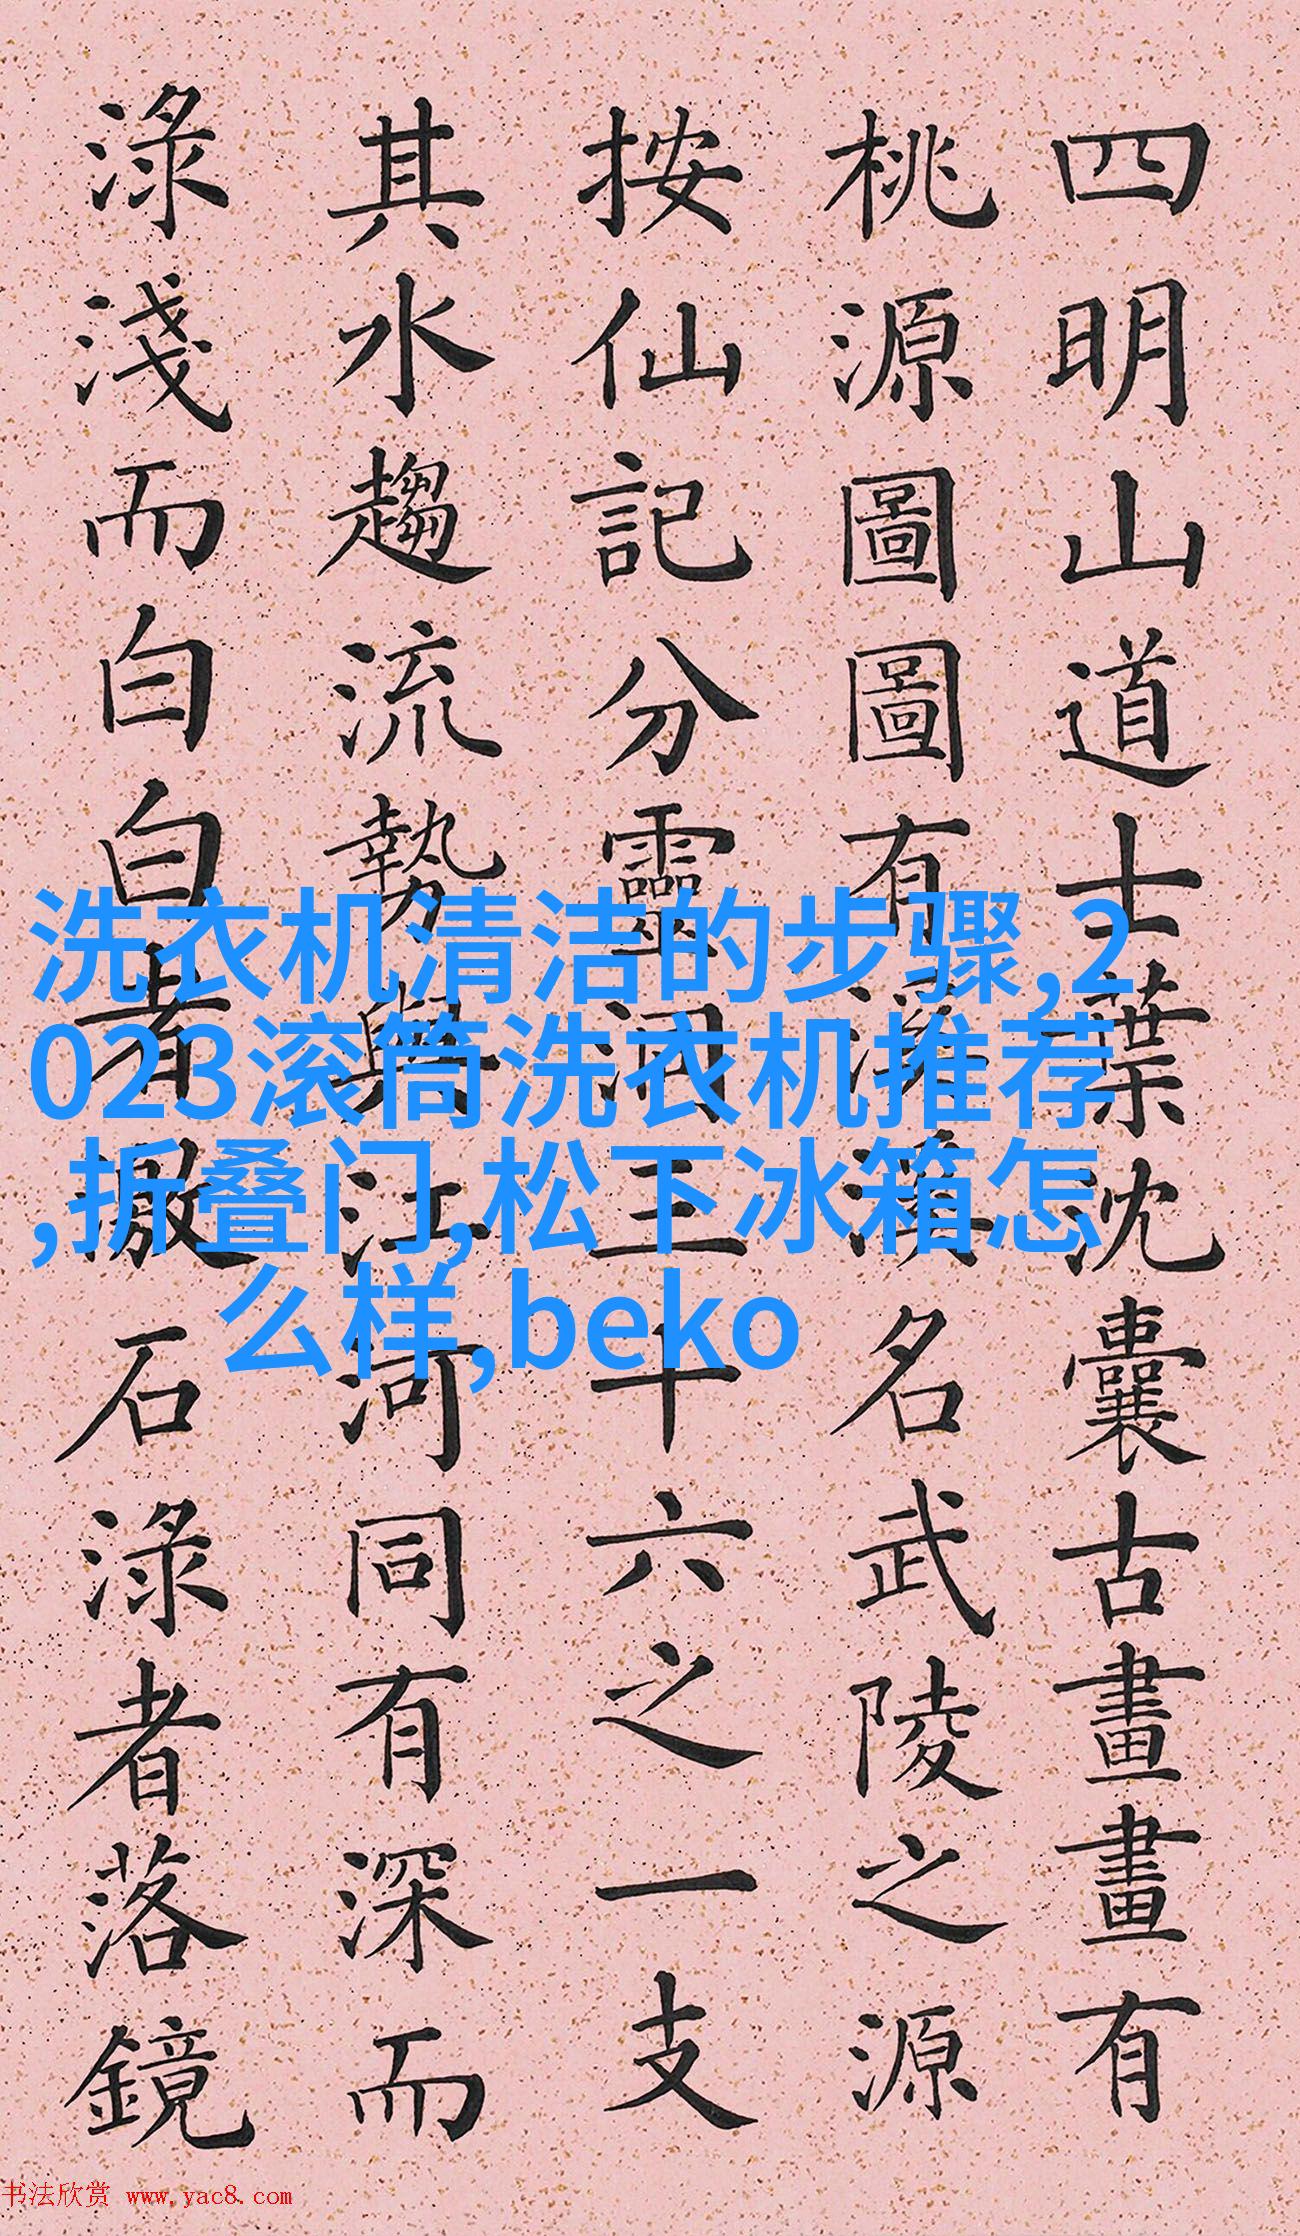 四明山道士葉沈囊古畫畫有
桃源圖圖有溪溪名武陵之源
按仙記分靈洞三十六之一支
其水趨流勢與江河同有深而
淥淺而白白者激石淥者落鏡
洗衣机清洁的步骤,2
023滚筒洗衣机推荐
,折叠门,松下冰箱怎
么样,beko
书法欣赏 www.yac8.com